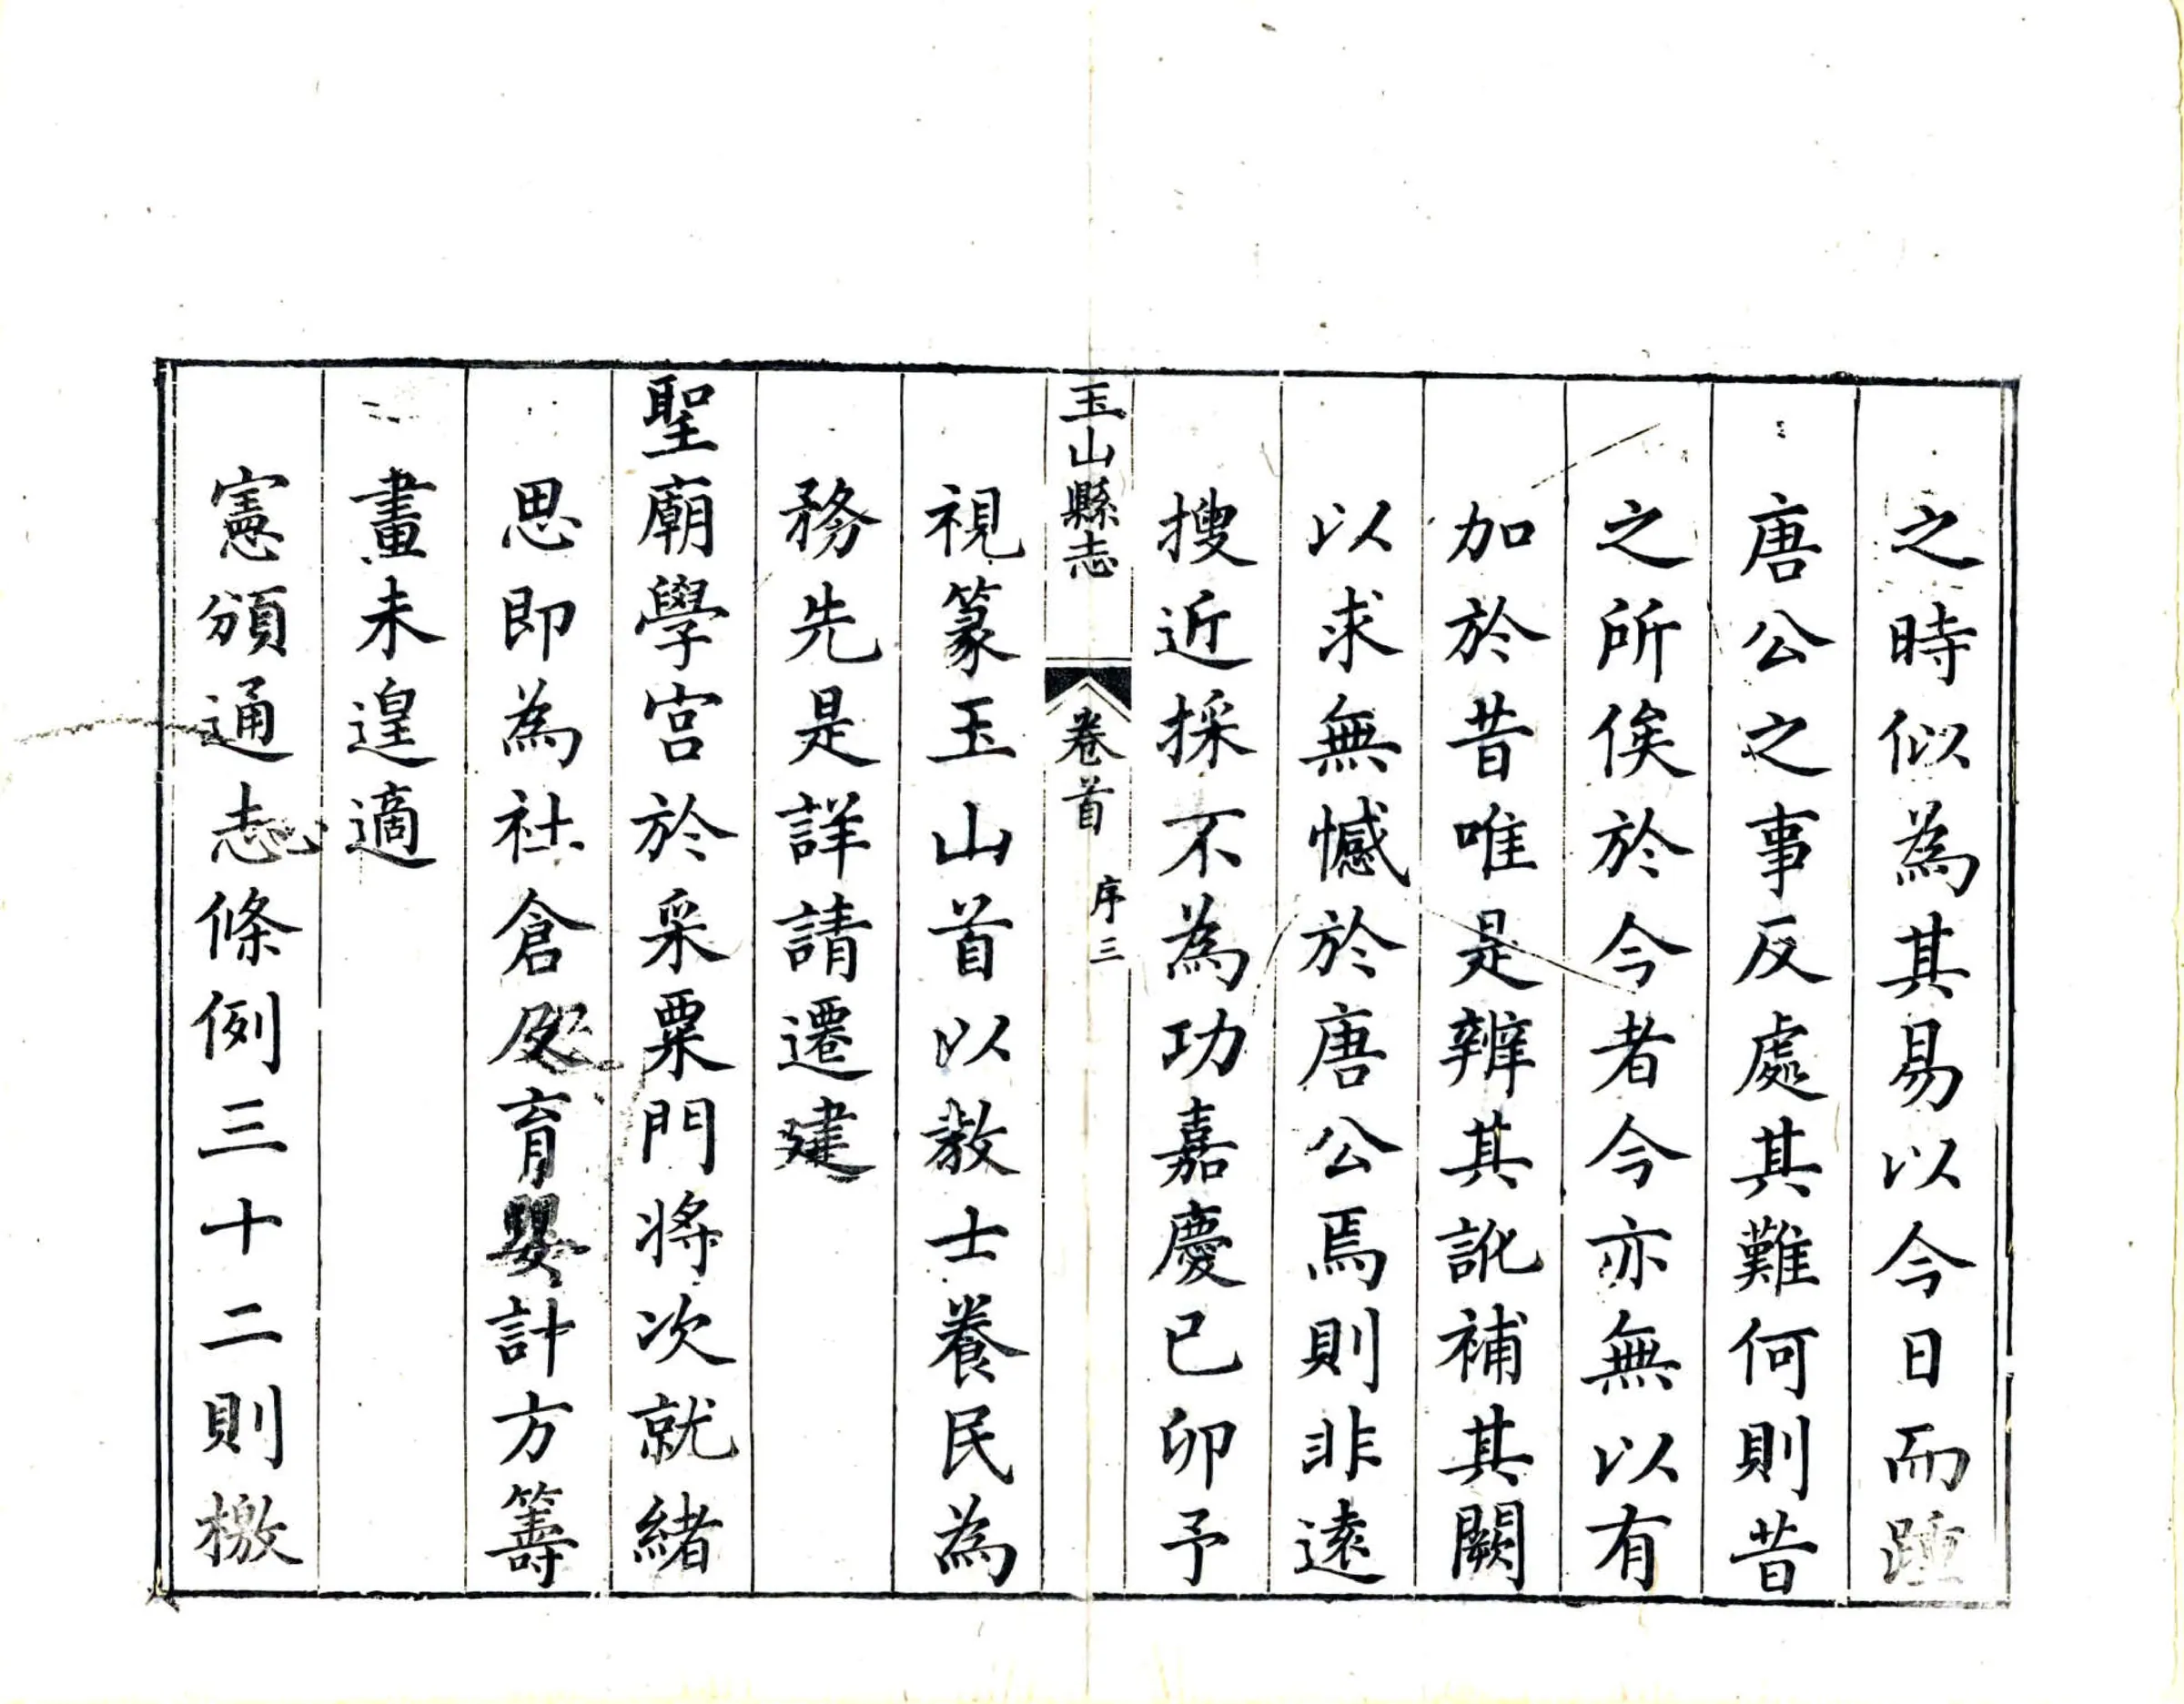 之時似為其易以今日而踵
唐公之事反處其難何則昔
之所俟於今者今亦無以有
加於昔唯是辨其訛補其闕
以求無憾於唐公焉則非遠
搜近採不為功嘉慶己卯予
玉山縣志 卷首 序 三
視篆玉山首以教士養民為
務先是詳請遷建
聖廟學宮於采粟門將次就緒
思即為社倉及育嬰計方籌
畫未遑適
憲頒通志條例三十二則檄